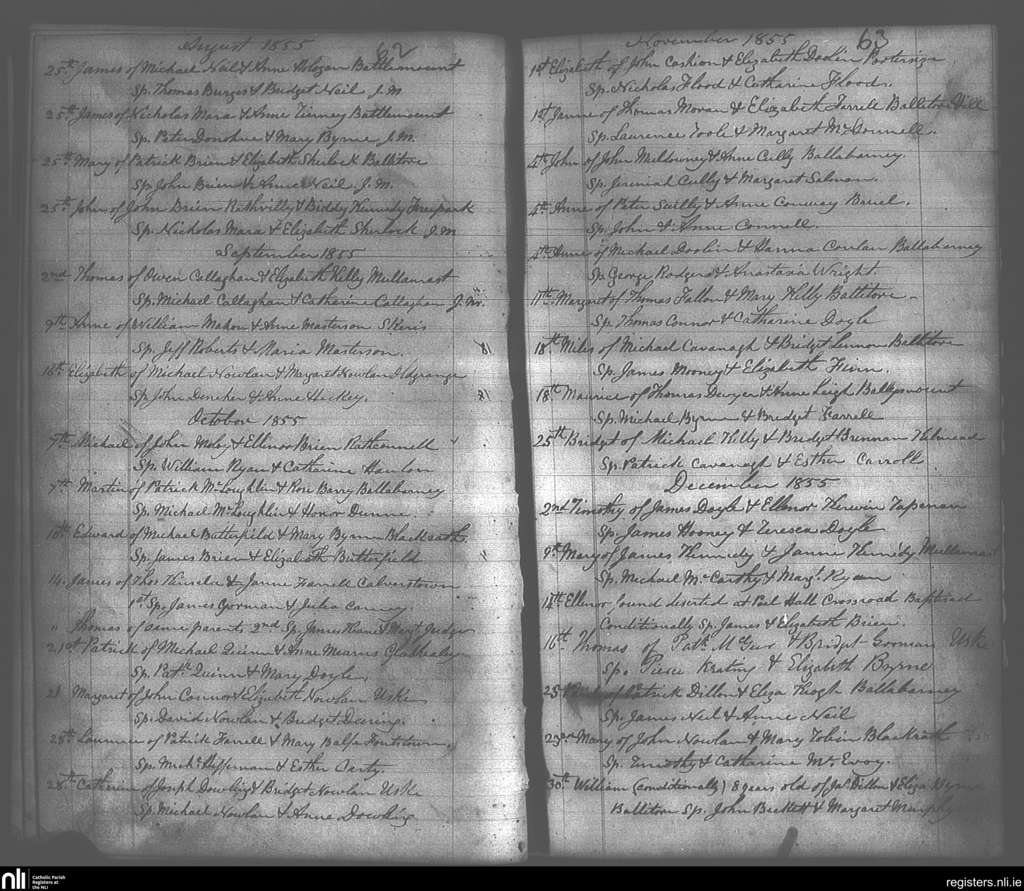 August 1855
62
25th James of Michael Neil & Anne Battlemount
Sp. Thomas Burges & Bridget Neil J.M
25th James of Nicholas Mara & Anne Tierney Battlemount
Sp. Peter Donohue & Mary Byrne J.M.
25th Mary of Patrick Brien & Elizabeth Sherlock Ballitore
Sp. John Brien & Anne Neil J.M.
25th John of John Brien Rathvilly & Biddy Kennedy
Sp. Nicholas Mara & Elizabeth Sherlock J.M
September 1855
2nd Thomas of Owen Callaghan & Elizabeth Kelly Mullamast
Sp. Michael Callaghan & Catherine Callaghan J.M.
9th Anne of William Mahon & Anne Masterson Skeris
Sp. Jeff Roberts & Maria Masterson.
16th Elizabeth of Michael Nowlan & Margaret Nowlan
Sp John & Anne Hickey.
October 1855
7th Michael of John & Ellenor Brien
Sp. William Ryan & Catherine Hanlon
7th Martin of Patrick McLoughlin & Rose Barry Ballabarney
Sp. Michael McLoughlin & Honor Dunne.
10th Edward of Michael Butterfield & Mary Byrne Blackrath
Sp. James Brien & Elizabeth Butterfield
14. James of Thos & Janne Farrell Calverstown
1st Sp. James Gorman & Julia
" Thomas of same parents 2nd Sp. James & Margt Judge
21st Patrick of Michael Quinn & Anne Mearns
Sp. Patk Quinn & Mary Doyle
21 Margaret of John Connor & Elizabeth Nowlan Uske
Sp. David Nowlan & Bridget Deering.
28th Laurence of Patrick Farrell & Mary Balfe Fontstown.
Sp. Michl Heffernan & Esther Carty.
28th Catherine of Joseph Dowling & Bridget Nowlan Uske
Sp. Michael Nowlan & Anne Dowling
November 1855
63
1st Elizabeth of John Cashion & Elizabeth Doolin
Sp. Nicholas Flood & Catharine Flood.
1st Janne of Thomas Moran & Elizabeth Farrell Ballitore Hill
Sp. Laurence Toole & Margaret McDonnell.
4th John of John Muldowney & Anne Cully Ballabarney.
Sp. Jeremiah Cully & Margaret
4th Anne of Peter & Anne Conway
Sp. John & Anne Connell.
4th Anne of Michael Doolin & Hanna Ballabarney
Sp. George Rodgers & Anastasia Wright.
11th Margaret of Thomas Fallon & Mary Kelly Ballitore
Sp. Thomas Connor & Catharine Doyle
18th Miles of Michael Cavanagh & Bridget Lennon Ballitore
Sp. James Mooney & Elizabeth
18th Maurice of Thomas Dwyer & Anne Leigh
Sp. Michael Byrne & Bridget Farrell
25th Bridget of Michael Kelly & Bridget Brennan
Sp. Patrick Cavanagh & Esther Carroll
December 1855
2nd Timothy of James Doyle & Ellenor Kerwin
Sp. James Hooney & Teresa Doyle
9th Mary of James Kennedy & Janne Kennedy Mullamast
Sp. Michael McCarthy & Margt. Ryan
14th Ellenor found deserted at Hall Crossroad Baptised
Conditionally Sp. James & Elizabeth Brien.
16th Thomas of Patk. & Bridget Gorman Uske
Sp. Pierce Keating & Elizabeth Byrne
25 of Patrick Dillon & Eliza Keogh Ballabarney
Sp. James Neil & Anne Neil
Mary of John Nowlan & Mary Tobin Blackrath
Sp. Timothy & Catharine McEvoy.
30th William (conditionally) 8 years old of Jas. Dillon & Eliza Byrne
Ballitore Sp. John Beckett & Margaret Murphy
nli
Catholic Parish
Registers at
the NLI
registers.nli.ie